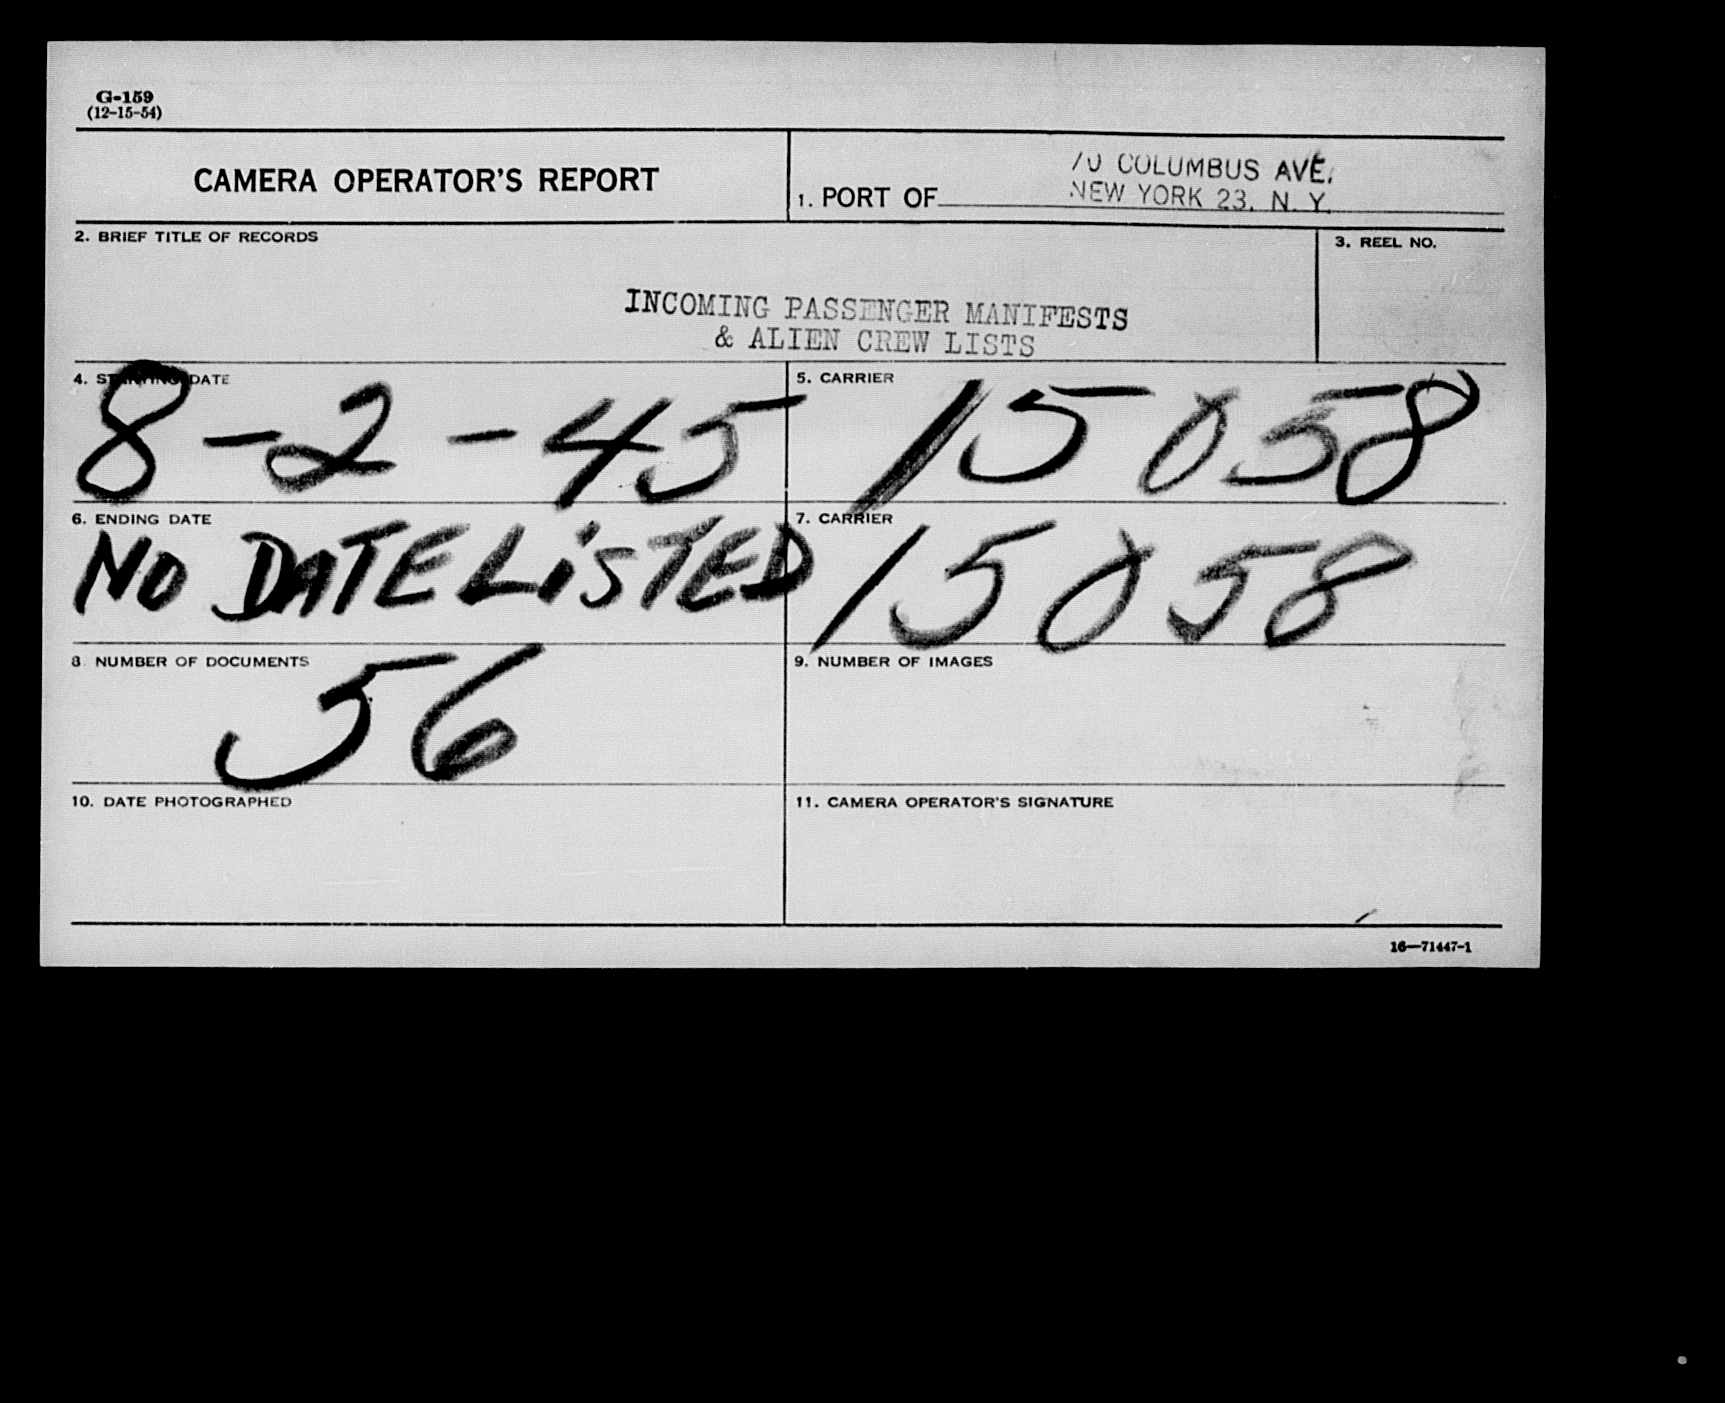 G-159
(12-15-54)
CAMERA OPERATOR'S REPORT
70 COLUMBUS AVE.
1. PORT OF NEW YORK 23, N. Y.
2. BRIEF TITLE OF RECORDS
3. REEL NO.
INCOMING PASSENGER MANIFESTS
& ALIEN CREW LISTS
4. STARTING DATE
8-2-45
5. CARRIER
15058
6. ENDING DATE
NO DATE LiSTED
7. CARRIER
15058
8. NUMBER OF DOCUMENTS
56
9. NUMBER OF IMAGES
10. DATE PHOTOGRAPHED
11. CAMERA OPERATOR'S SIGNATURE
16—71447-1